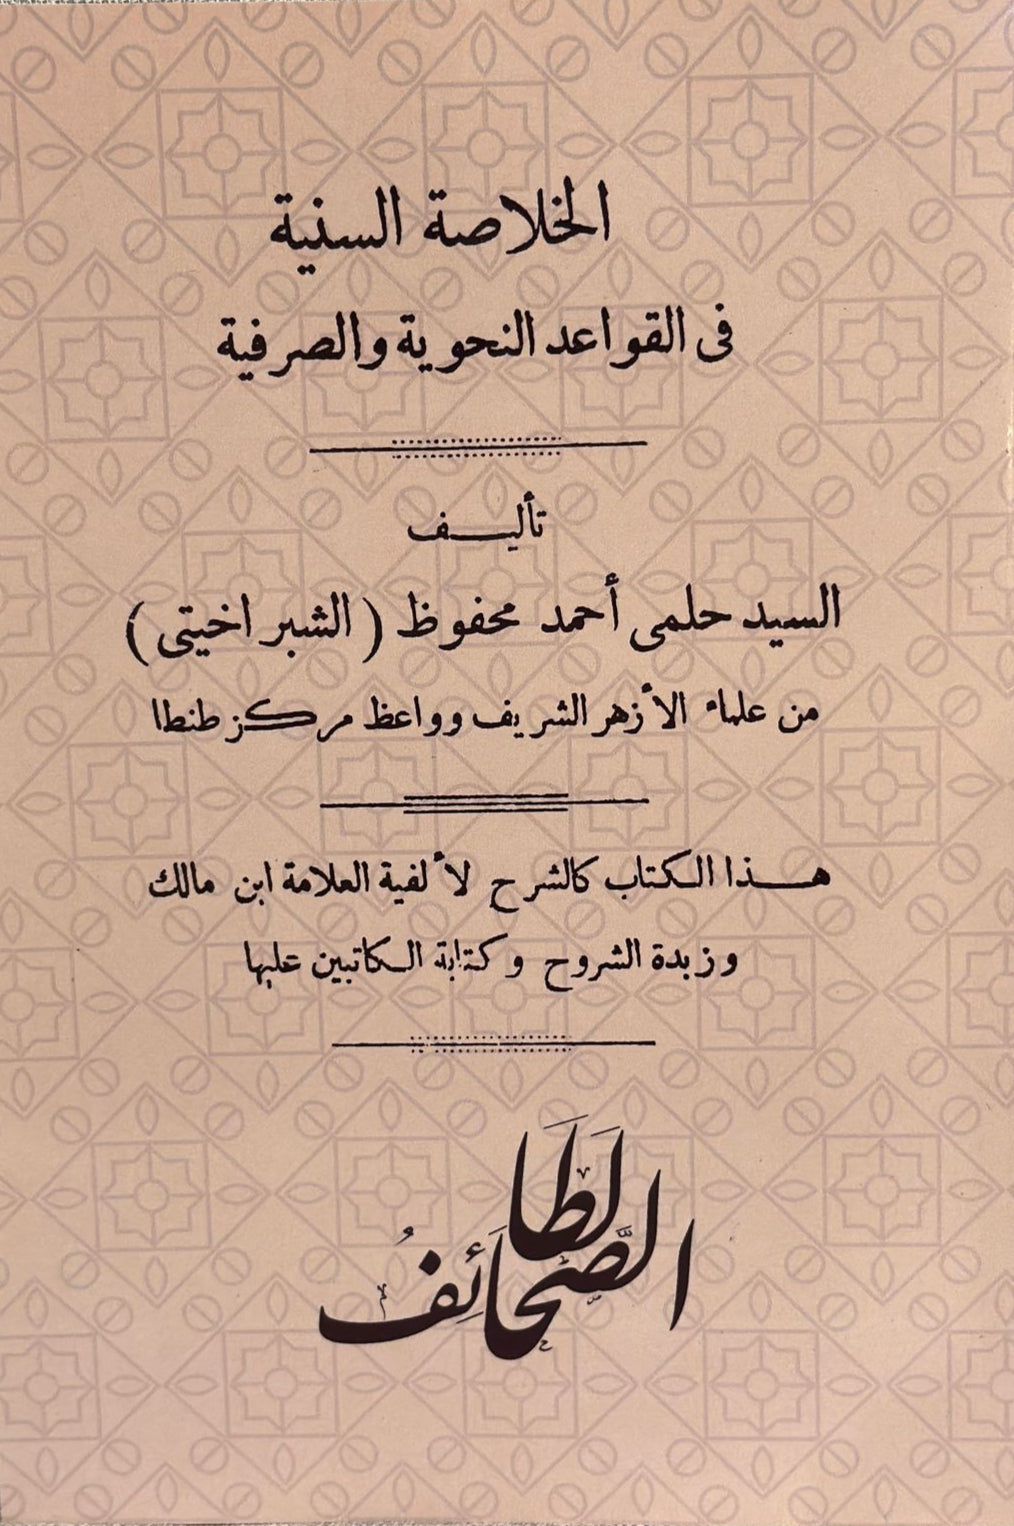 الخلاصة السنية
فى القواعد النحوية والصرفية
تأليف
السيد حلمى أحمد محفوظ (الشبراخيتى)
من علماء الأزهر الشريف وواعظ مركز طنطا
هذا الكتاب كالشرح لألفية العلامة ابن مالك
وزبدة الشروح وكتابة الكاتبين عليها
لطا
الصَّحَائِفُ